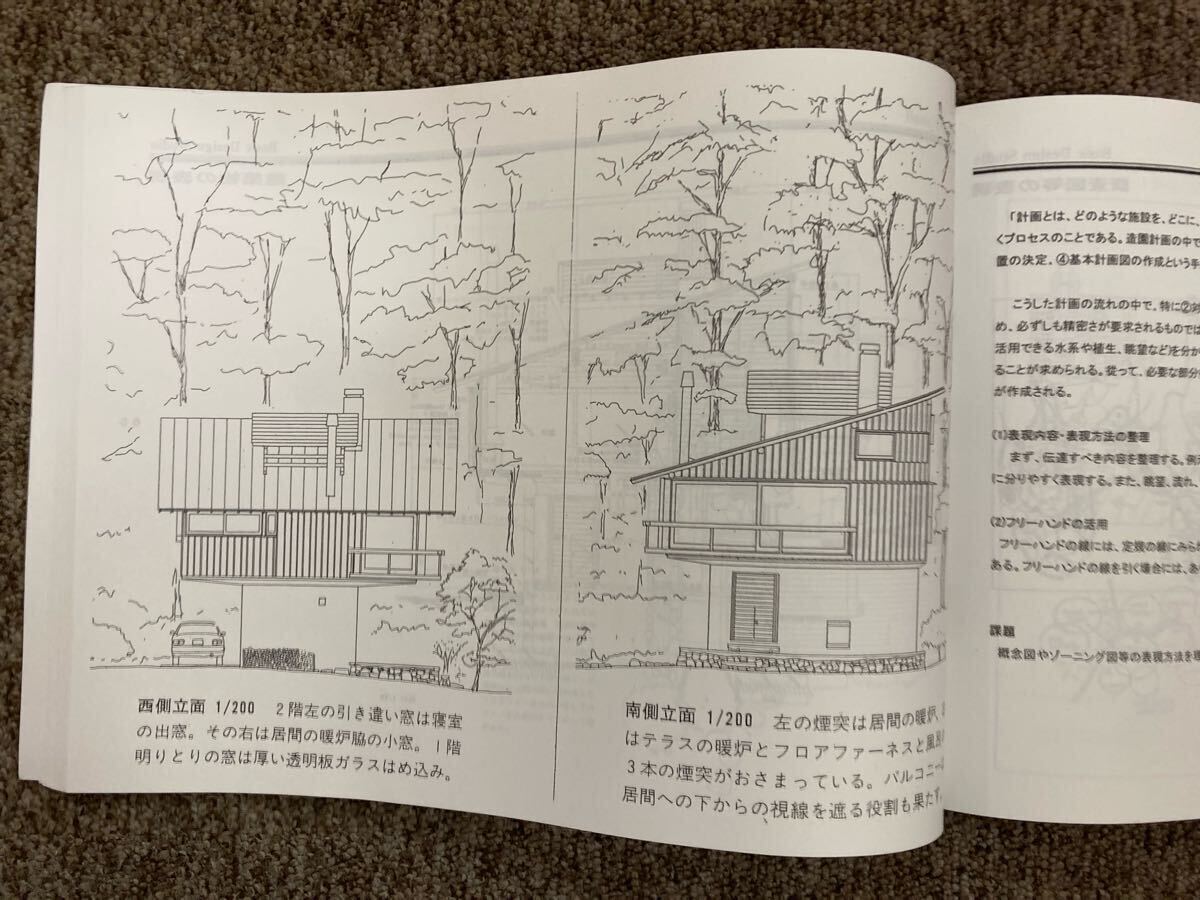 西側立面 1/200　2階左の引き違い窓は寝室
の出窓。その右は居間の暖炉脇の小窓。1階
明りとりの窓は厚い透明板ガラスはめ込み。
南側立面 1/200　左の煙突は居間の暖炉、
はテラスの暖炉とフロアファーネスと風
3本の煙突がおさまっている。バルコニー
居間への下からの視線を遮る役割も果たす。
Design Studio
「計画とは、どのような施設を、どこに、
くプロセスのことである。造園計画の中で
置の決定、④基本計画図の作成という手
こうした計画の流れの中で、特に②対
め、必ずしも精密さが要求されるものでは
活用できる水系や植生、眺望など)を分か
ることが求められる。従って、必要な部分
が作成される。
(1)表現内容・表現方法の整理
まず、伝達すべき内容を整理する。例
に分りやすく表現する。また、眺望、流れ、
(2)フリーハンドの活用
フリーハンドの線には、定規の線にみら
ある。フリーハンドの線を引く場合には、あ
課題
概念図やゾーニング図等の表現方法を理